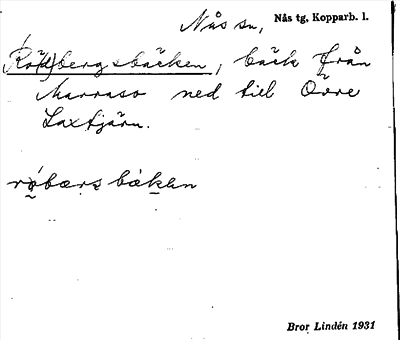 Nås sn, Nås tg, Kopparb. l.
Rö(d)bergsbäcken, bäck från
ned till Övre
Laxtjärn.
Bror Lindén 1931